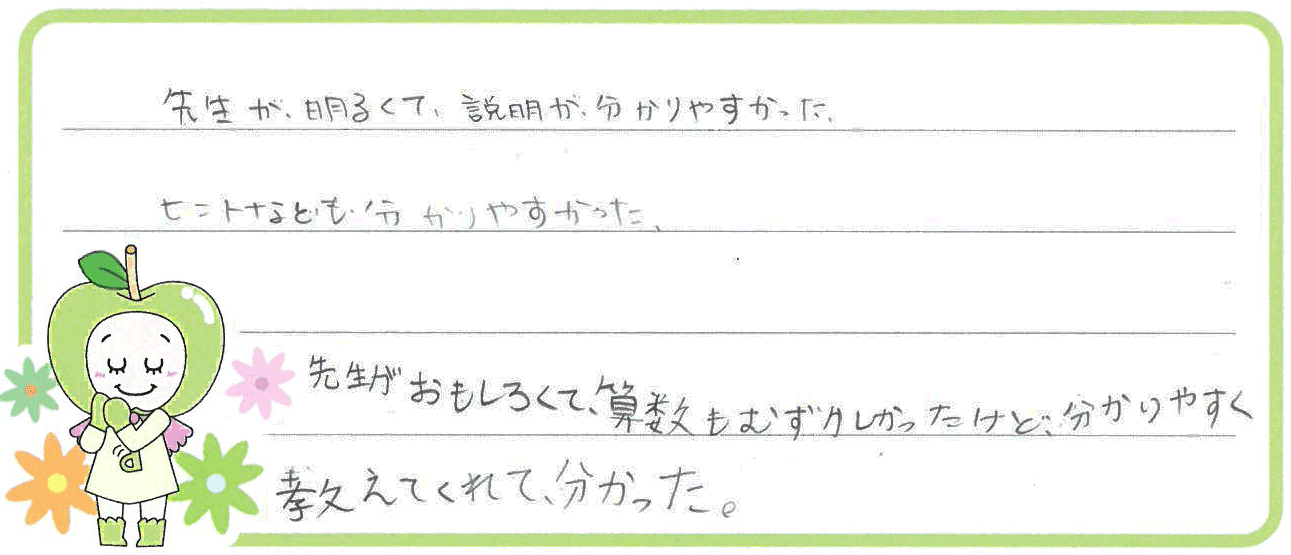 先生が、明るくて、説明が、分かりやすかった、
ヒントなども、分かりやすかった、
先生がおもしろくて、算数もむずかしかったけど、分かりやすく
教えてくれて、分かった。